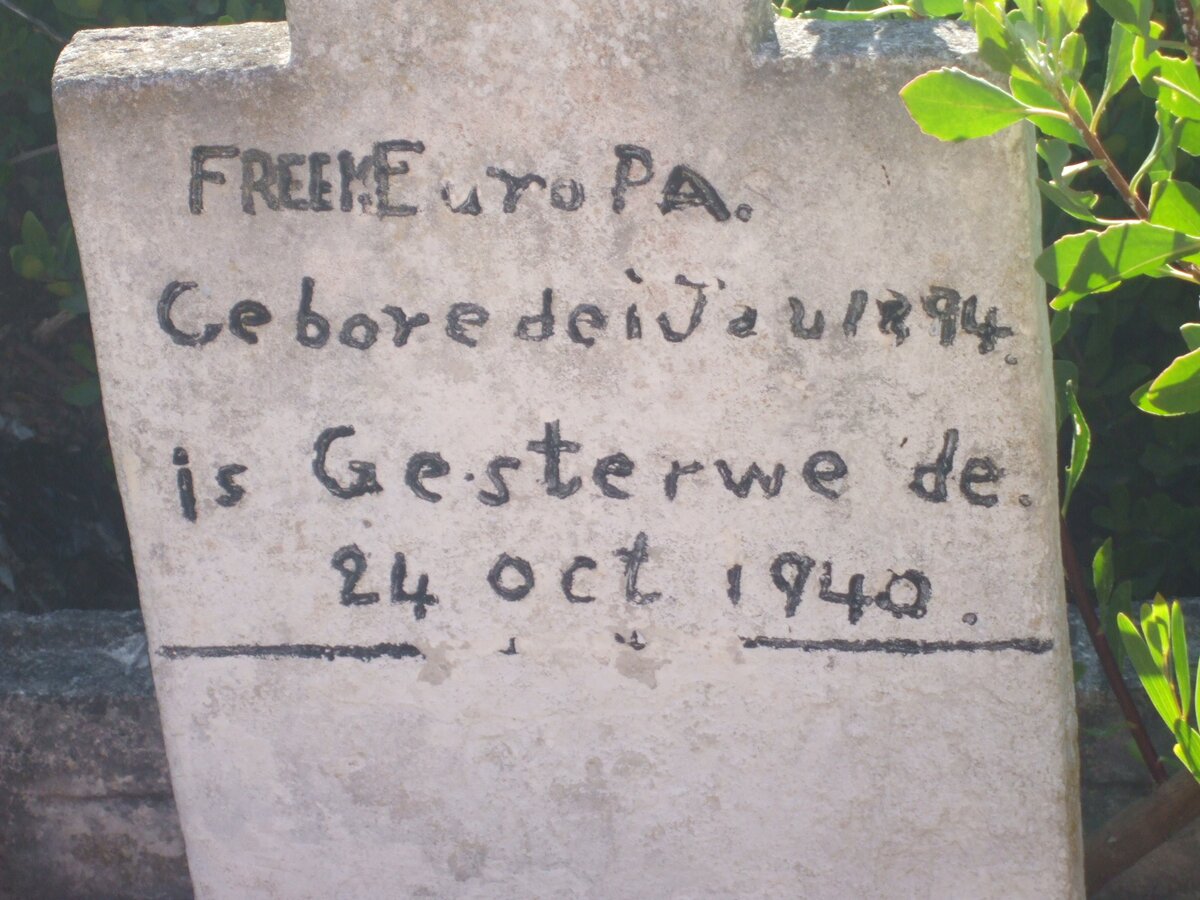 FREEMEuroPA.
Gebore dei Jau 1894.
is Ge.sterwe de.
24 oct 1940.